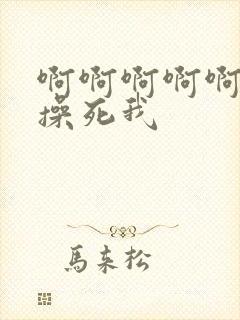 啊啊啊啊啊
操死我
馬来松